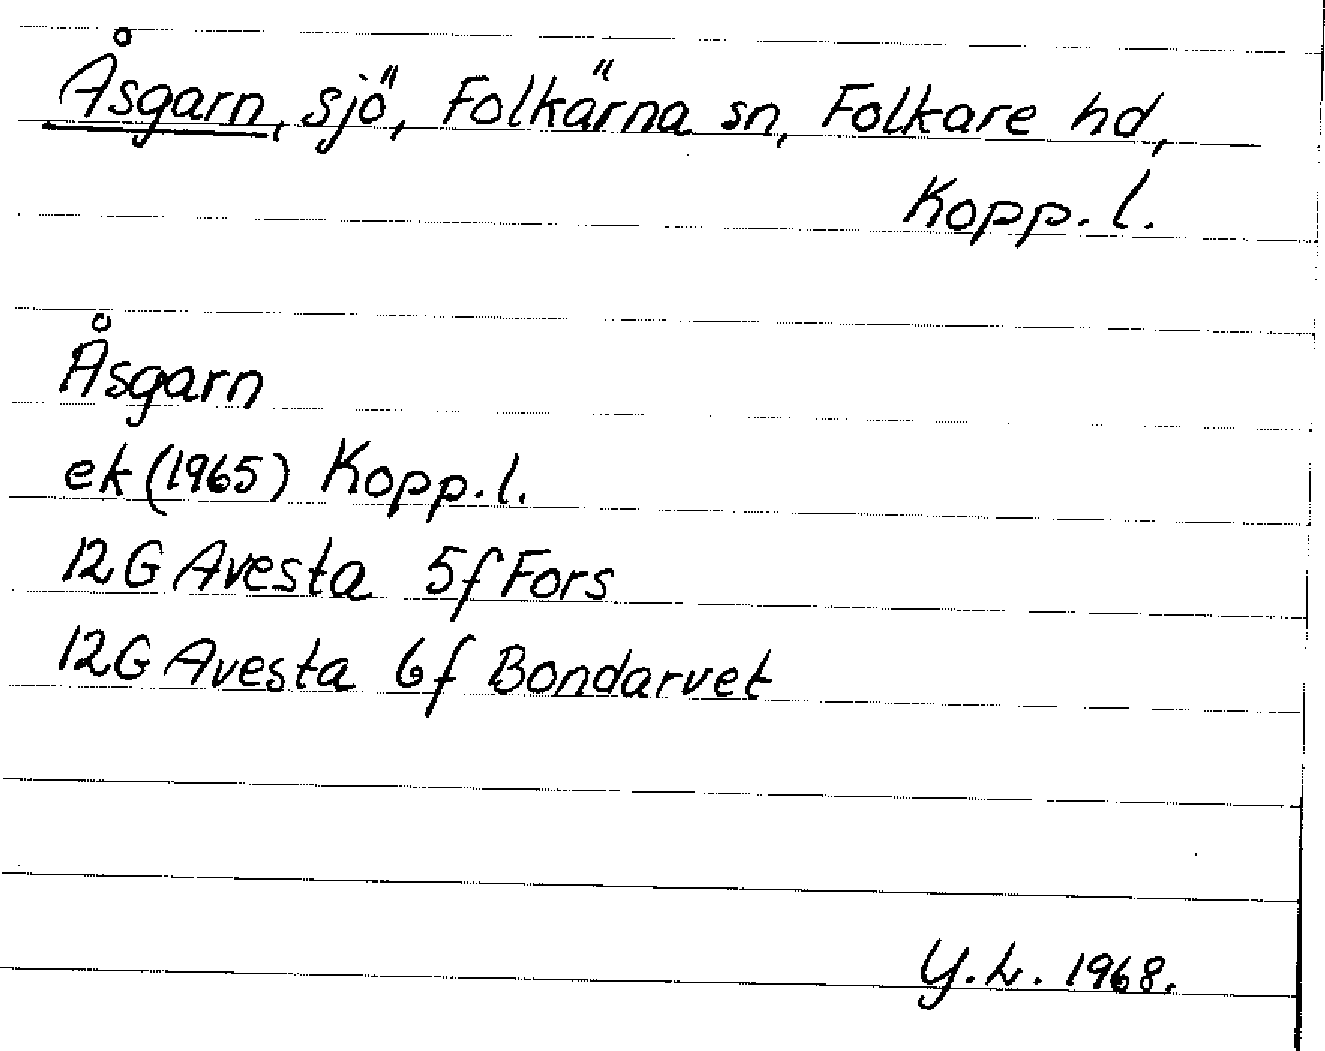 Åsgarn, sjö, Folkärna sn, Folkare hd,
Kopp. l.
Åsgarn
ek (1965) Kopp. l.
12G Avesta 5f Fors
12G Avesta 6f Bondarvet
Y.L. 1968.